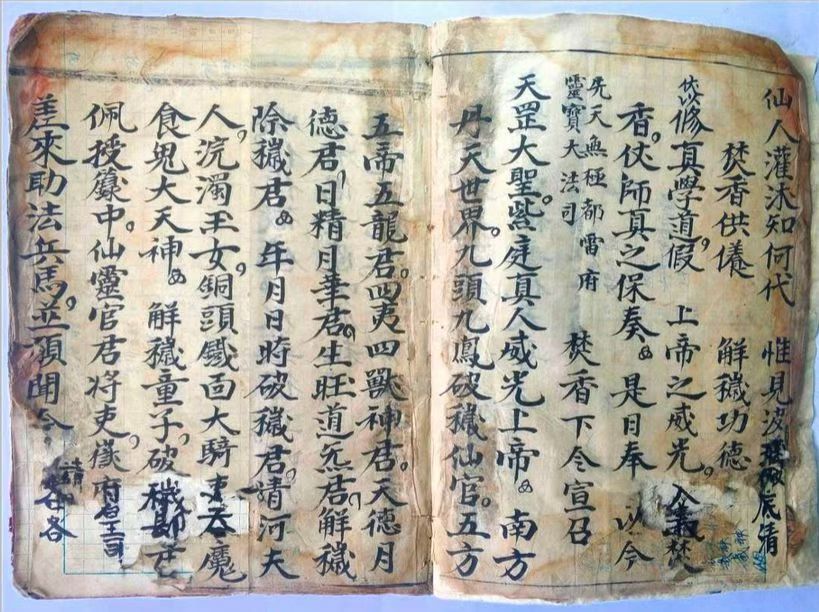 仙人灌沐知何代 惟見波 徹底清
焚香供儀 解穢功德
依修真學道。假 上帝之威光。 焚
香。仗師真之保奏。是日奉 以今
先天無極都雷府
靈寶大法司 焚香下令宣召
天罡大聖。紫庭真人威光上帝。南方
丹天世界。九頭九鳳破穢仙官。五方
五帝五龍君。四夷四獸神君。天德月
德君，日精月華君，生旺道炁君，解穢
除穢君。年月日時破穢君，請河夫
人，浣濁玉女，銅頭鐵面大騎吏吞魔
食鬼大天神。解穢童子，破穢 君
佩授籙中。仙靈官君將吏，嶽府 司
差來助法兵馬，並須聞令 請 各